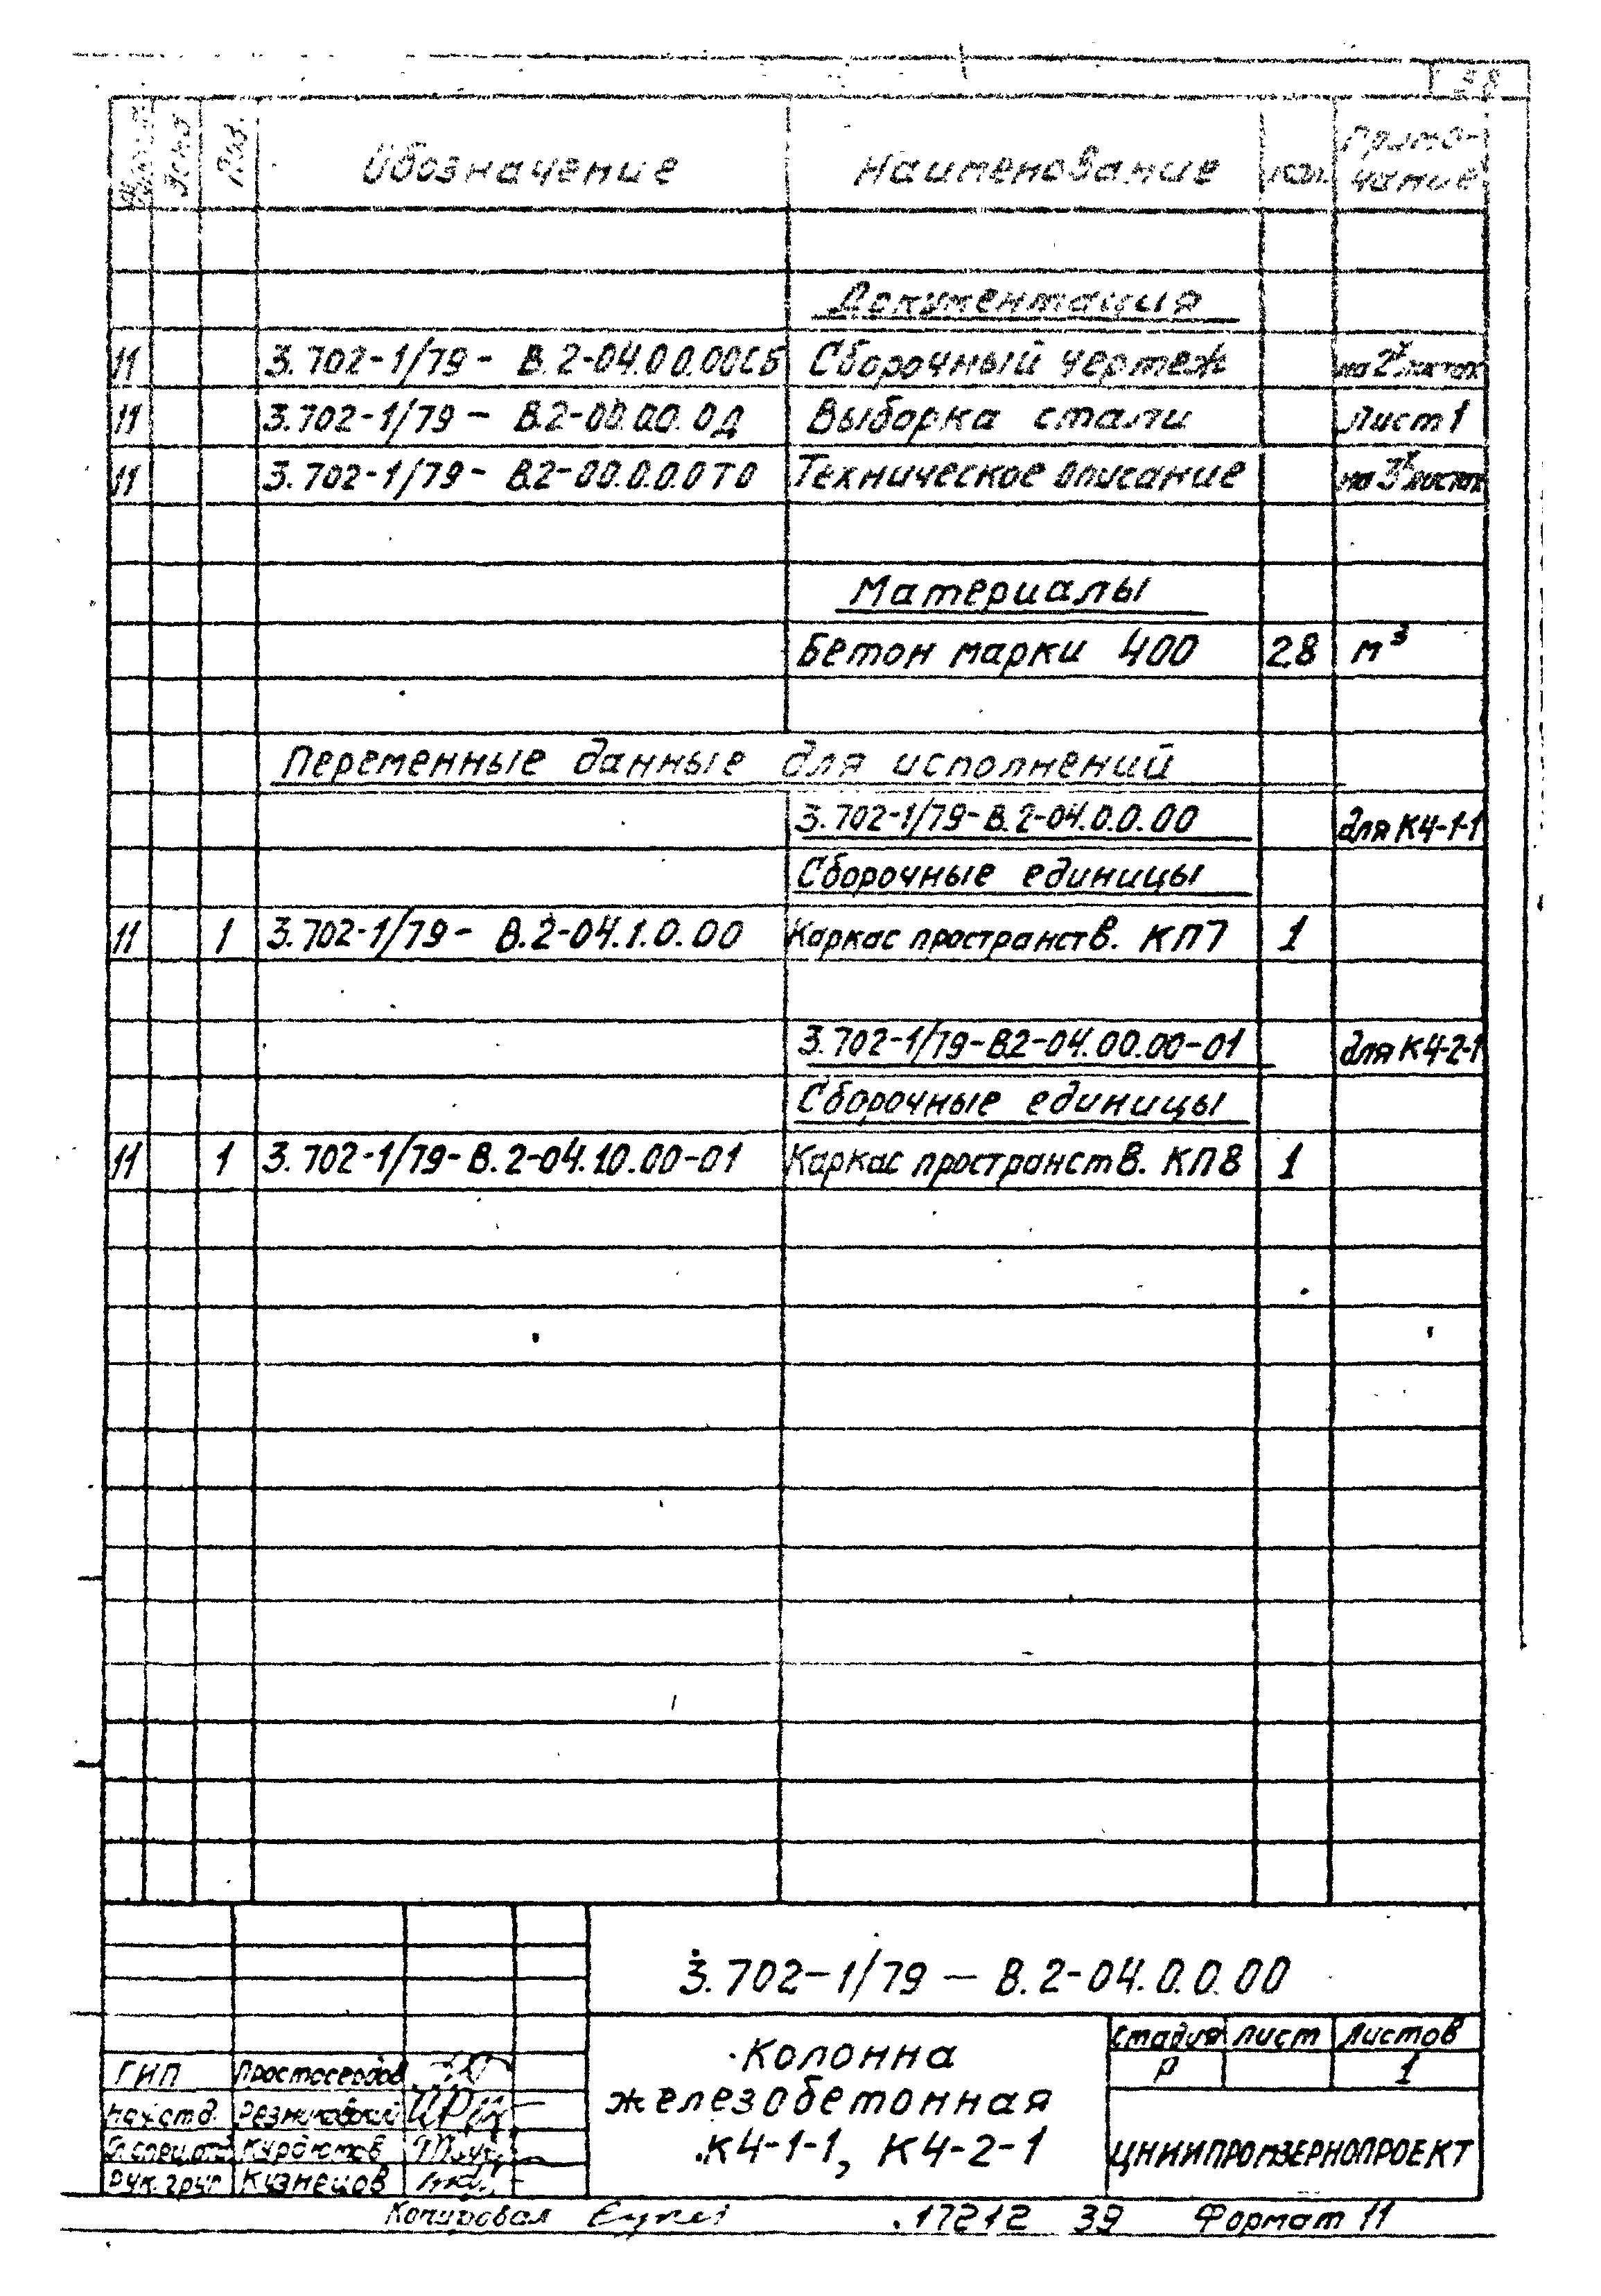 38
Формат Зона Поз. Обозначение Наименование Кол. Приме-
чание
Документация
11 3.702-1/79- В.2-04.0.0.00СБ Сборочный чертеж на 2х листах
11 3.702-1/79 - В.2-00.0.0.0Д Выборка стали Лист 1
11 3.702-1/79- В.2-00.0.0.0ТО Техническое описание на 3х листах
Материалы
Бетон марки 400 2.8 м³
Переменные данные для исполнений
3.702-1/79-В.2-04.0.0.00 для К4-1-1
Сборочные единицы
11 1 3.702-1/79- В.2-04.1.0.00 Каркас пространств. КП7 1
3.702-1/79-В.2-04.00.00-01 для К4-2-1
Сборочные единицы
11 1 3.702-1/79-В.2-04.10.00-01 Каркас пространств. КП8 1
3.702-1/79 - В.2-04.0.0.00
Колонна
железобетонная
К4-1-1, К4-2-1
Стадия Лист Листов
Р 1
ЦНИИПРОМЗЕРНОПРОЕКТ
ГИП Простосердов
Нач.отд. Резниковский
Гл.спец.отд. Курдюмов
Рук.груп Кузнецов
Копировал 17212 39 Формат 11